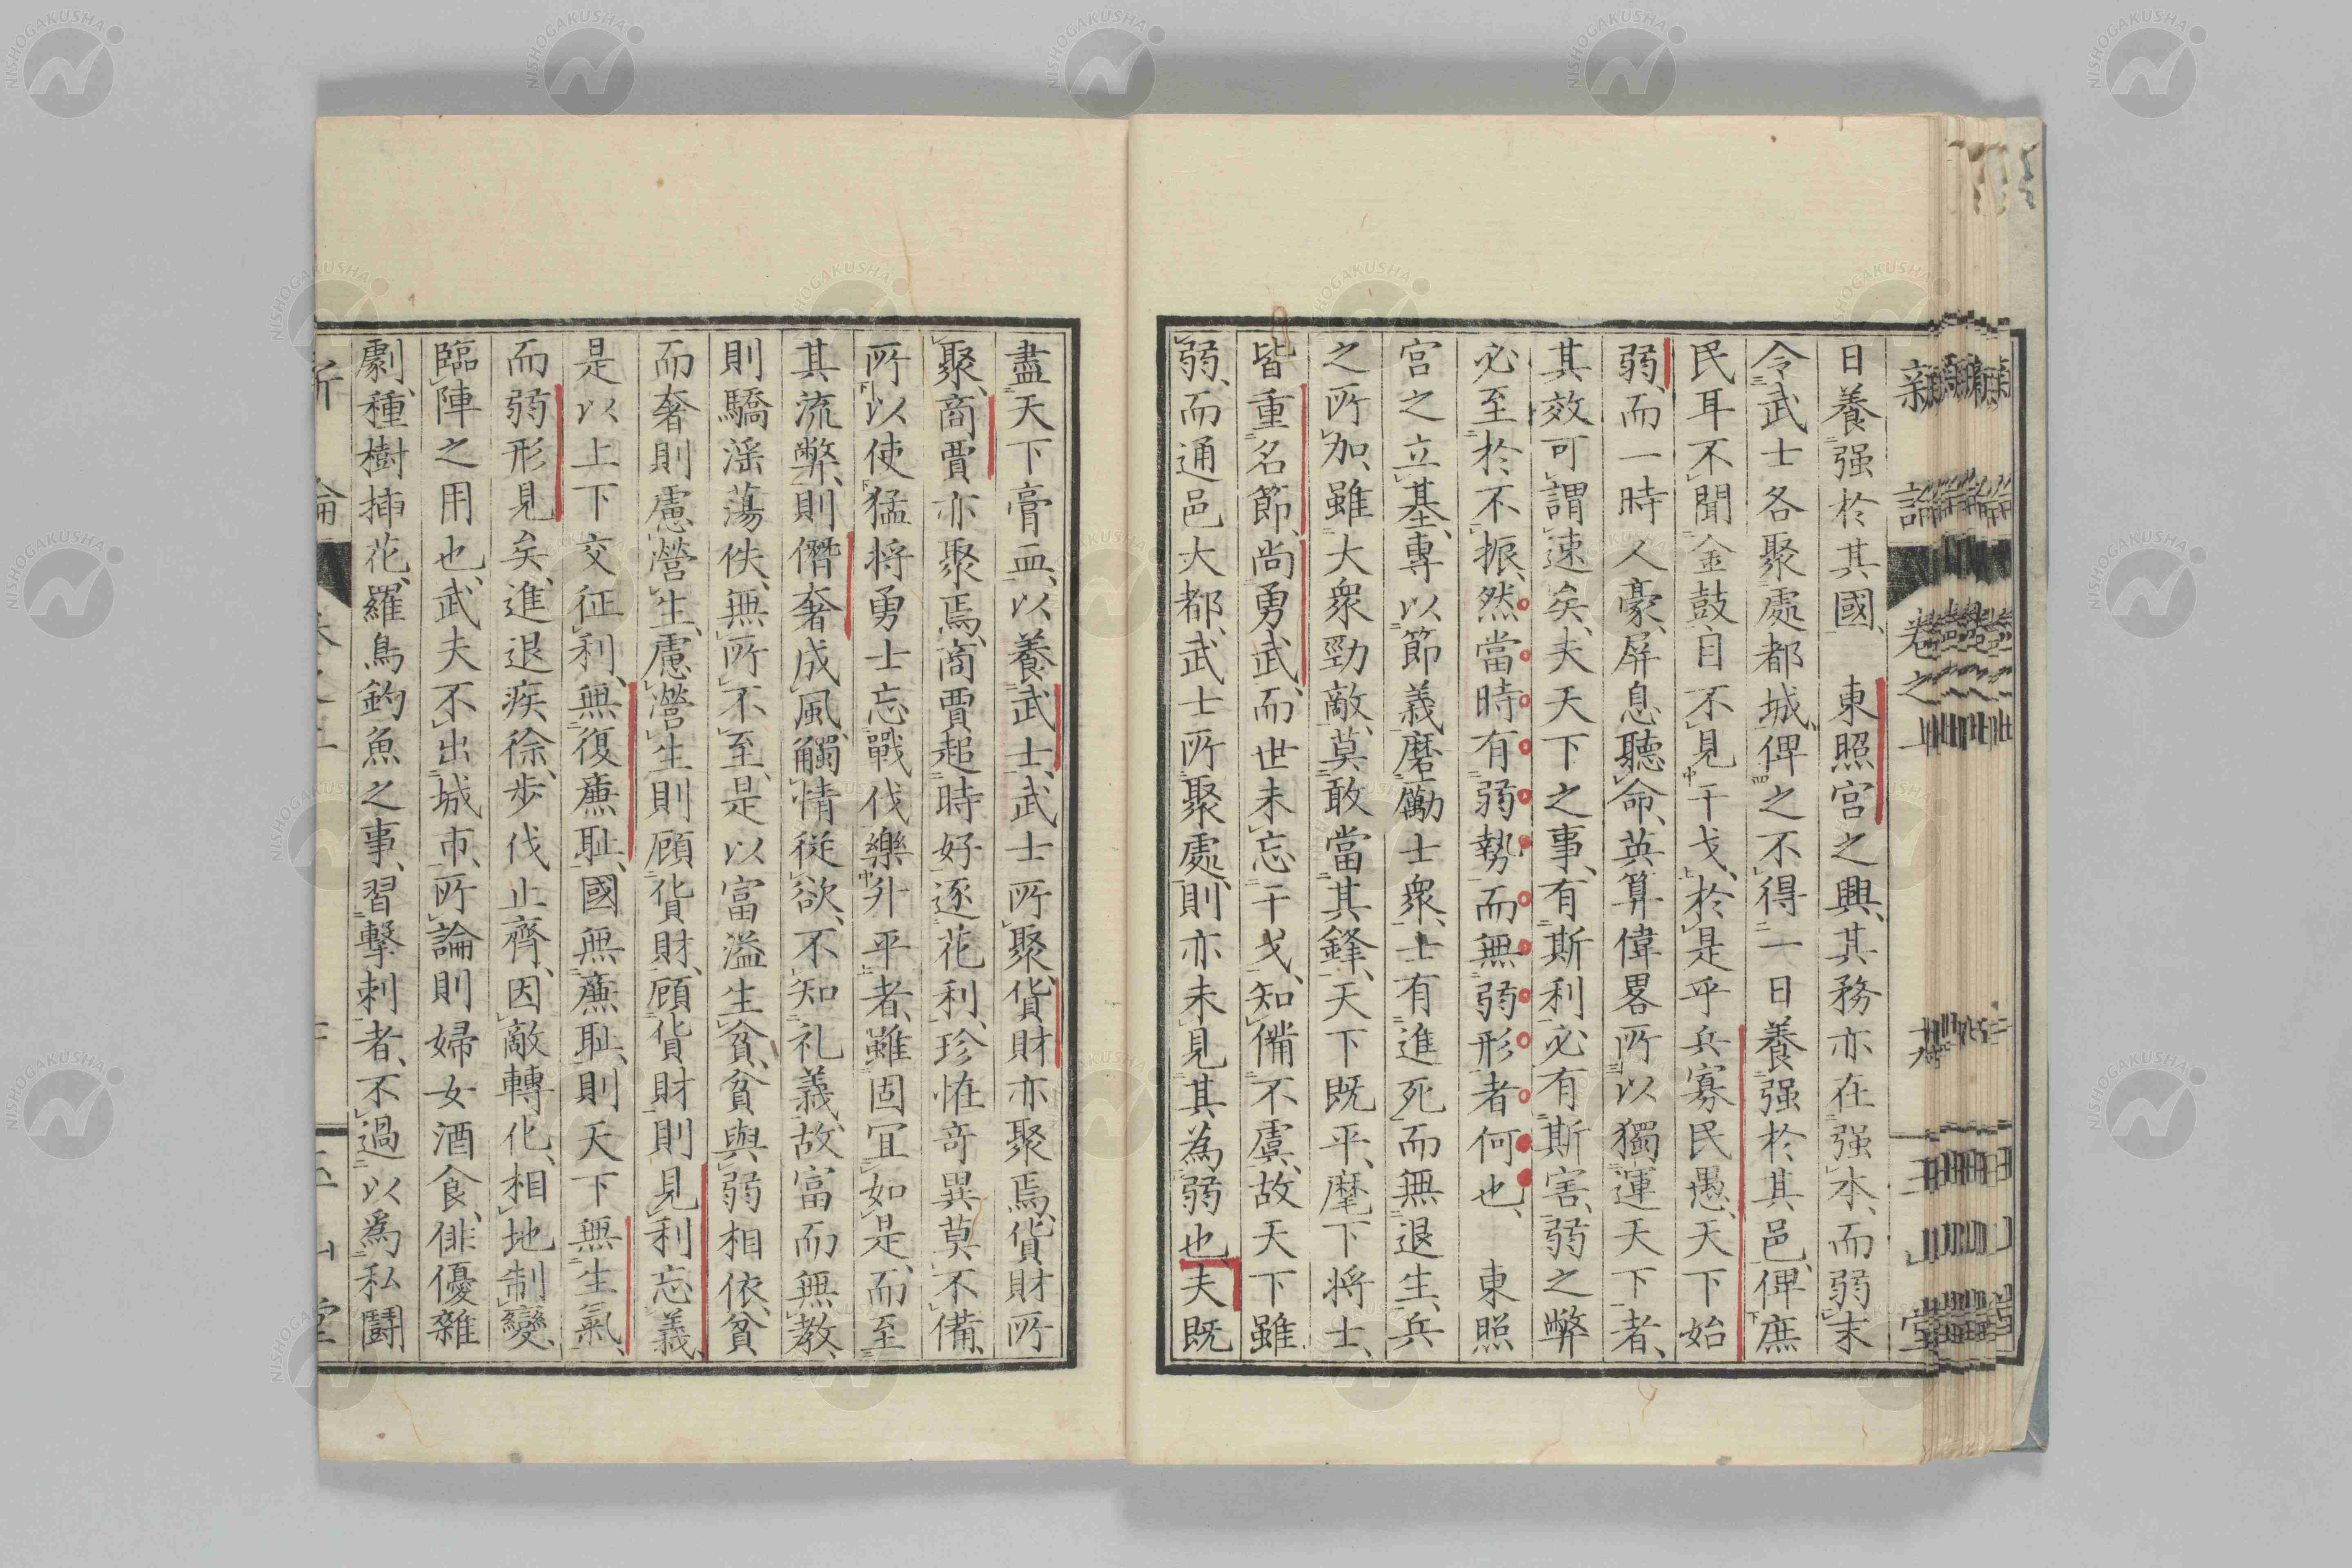 新論 卷之上 玉山堂
日養强於其國、 東照宮之興、其務亦在强本、而弱末
令武士各聚處都城、俾之不得一日養强於其邑、俾庶
民耳不聞金鼓、目不見干戈、於是乎兵寡民愚、天下始
弱、而一時人豪、屏息聽命、英算偉畧所以獨運天下者、
其效可謂速矣、夫天下之事、有斯利必有斯害、弱之弊
必至於不振、然當時有弱勢而無弱形者何也、 東照
宮之立基、專以節義磨勵士衆、士有進死而無退生、兵
之所加、雖大衆勁敵、莫敢當其鋒、天下既平、麾下將士、
皆重名節、尚勇武、而世未忘干戈、知備不虞、故天下雖
弱、而通邑大都、武士所聚處、則亦未見其為弱也、夫既
盡天下膏血、以養武士、武士所聚、貨財亦聚焉、貨財所
聚、商賈亦聚焉、商賈趁時好、逐花利、珍怪奇異莫不備、
所以使猛将勇士忘戰伐樂升平者、雖固冝如是、而至
其流弊、則僭奢成風、觸情從欲、不知礼義、故富而無教、
則驕滛蕩佚、無所不至、是以富溢生貧、貧與弱相依、貧
而奢則慮營生、慮營生則顧貨財、顧貨財則見利忘義、
是以上下交征利、無復廉耻、國無廉耻、則天下無生氣、
而弱形見矣、進退疾徐、步伐止齊、因敵轉化、相地制變、
臨陣之用也、武夫不出城市、所論則婦女酒食、俳優雜
劇、種樹挿花、羅鳥釣魚之事、習擊刺者、不過以為私鬪